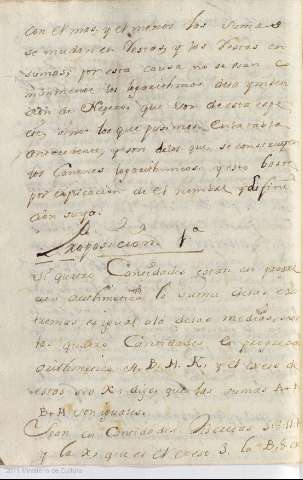 con el mas, y el menos las sumas
se mudan en restas, y las restas en
sumas; por esta causa no se usan
los logarithmos
de Nepero, que son de esta espe
cie, sino los que pusimos en la tabla
antecedente, y son de los que se construyen
los Canones logarithmicos, y esto baste
por explicacion de el nombre, y defini
cion suya.
Proposicion 1ª
Si quatro Cantidades estan en progre
sion arithmetica la suma de las ex
tremas es igual a la de las medias, sean
las quatro Cantidades la progresion
arithmetica A, B, H, K, y el exceso de
estas sea X, digo que las sumas A+K
B+H son iguales.
Sean en Cantidades
y la X, que es el exceso 3, la B, 8
2011 Ministerio de Cultura